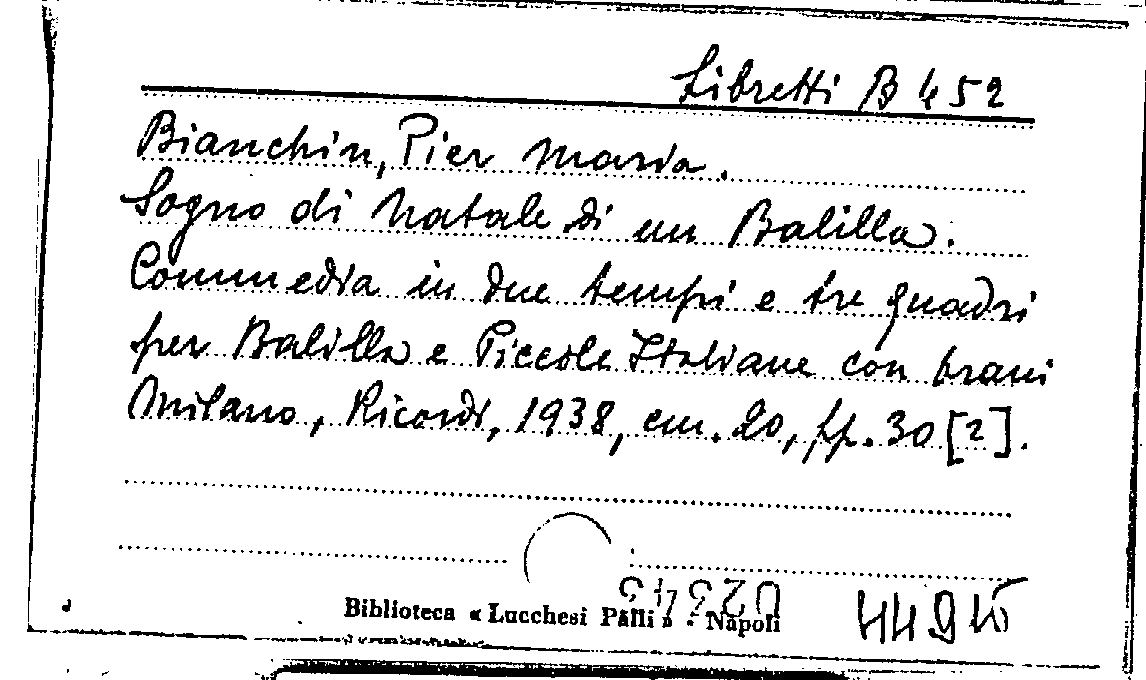 Libretti B 452
Bianchin, Pier Maria.
Sogno di Natale di un Balilla.
Commedia in due tempi e tre quadri
per Balilla e Piccole Italiane con brani
Milano, Ricordi, 1938, cm. 20, pp. 30 [2].
Biblioteca « Lucchesi Palli » - Napoli